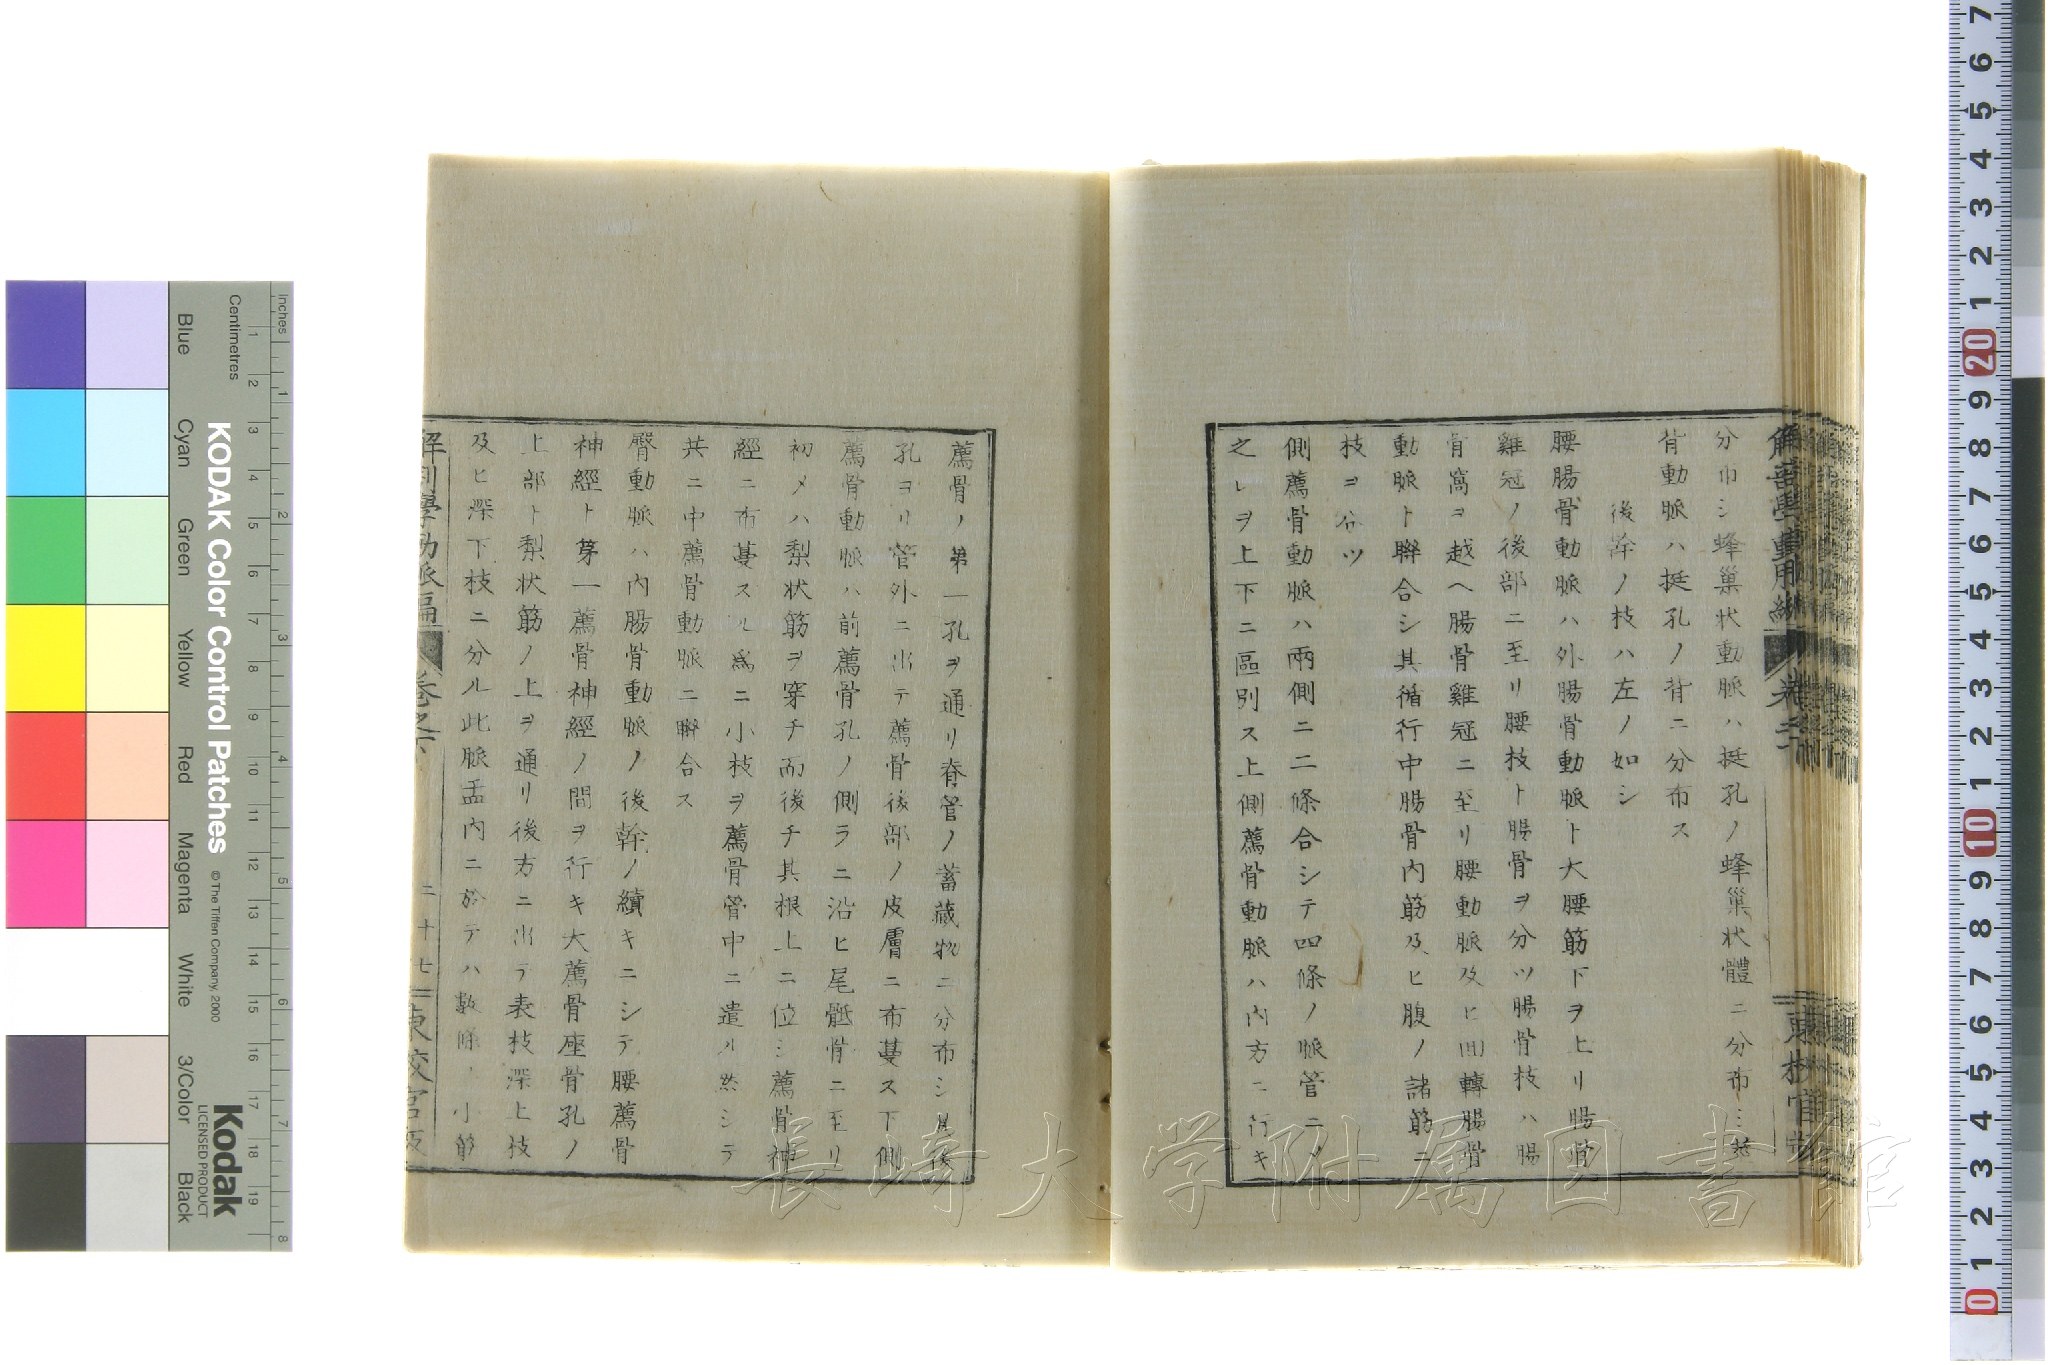 分布シ蜂巢状動脈ハ挺孔ノ蜂巢状體ニ分布シ挺
背動脈ハ挺孔ノ背ニ分布ス
後幹ノ枝ハ左ノ如シ
腰腸骨動脈ハ外腸骨動脈ト大腰筋下ヲ上リ腸骨
雞冠ノ後部ニ至リ腰枝ト腸骨ヲ分ツ腸骨枝ハ腸
骨窩ヲ越ヘ腸骨雞冠ニ至リ腰動脈及ヒ回轉腸骨
動脈ト聯合シ其循行中腸骨内筋及ヒ腹ノ諸筋ニ
枝ヲ分ツ
側薦骨動脈ハ兩側ニ二條合シテ四條ノ脈管ニノ
之レヲ上下ニ區別ス上側薦骨動脈ハ内方ニ行キ
薦骨ノ第一孔ヲ通リ脊管ノ蓄藏物ニ分布シ其後
孔ヨリ管外ニ出テ薦骨後部ノ皮膚ニ布蔓ス下側
薦骨動脈ハ前薦骨孔ノ側ラニ沿ヒ尾骶骨ニ至リ
初メハ梨状筋ヲ穿チ而後チ其根上ニ位シ薦骨神
經ニ布蔓スル為ニ小枝ヲ薦骨管中ニ遣ル然シテ
共ニ中薦骨動脈ニ聯合ス
臀動脈ハ内腸骨動脈ノ後幹ノ續キニシテ腰薦骨
神經ト第一薦骨神經ノ間ヲ行キ大薦骨座骨孔ノ
上部ト梨状筋ノ上ヲ通リ後方ニ出テ表枝深上枝
及ヒ深下枝ニ分ル此脈盂内ニ於テハ數條ノ小筋
解剖學動脈編
二十七
東校官板
長崎大学附属図書館
KODAK Color Control Patches
© The Tiffen Company, 2000
Kodak
LICENSED PRODUCT
Inches
Centimetres
Blue
Cyan
Green
Yellow
Red
Magenta
White
3/Color
Black